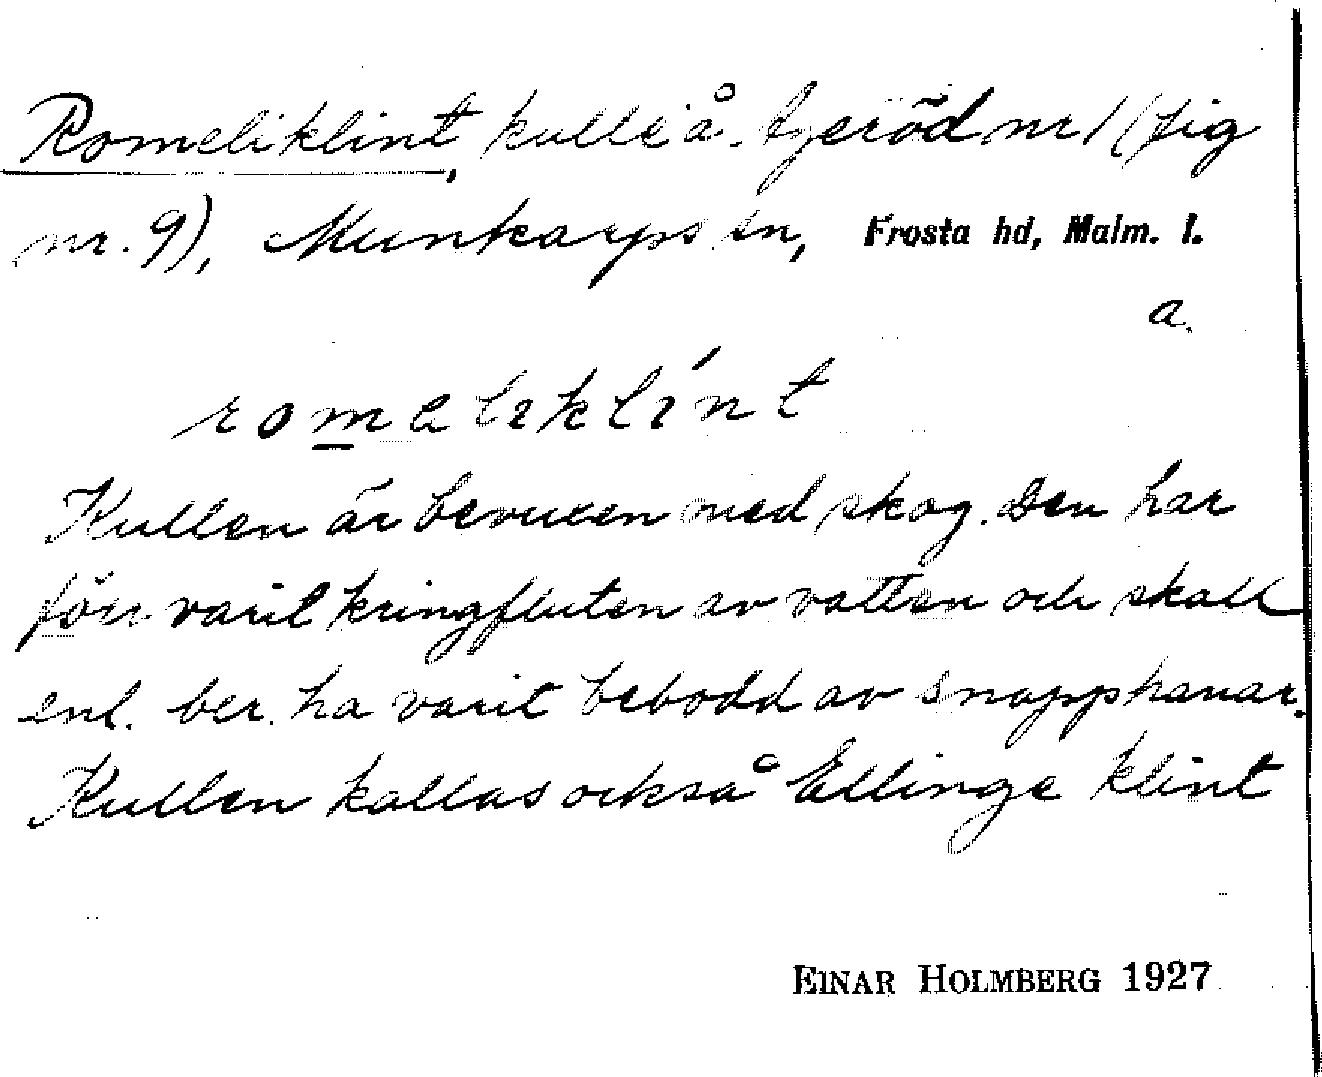 Romeliklint, kulle å Ageröd nr 1 (fig
nr. 9), Munkarps sn, Frosta hd, Malm. l.
a.
romeliklint
Kullen är bevuxen med skog. Den har
förr varit kringfluten av vatten och skall
enl. ber. ha varit bebodd av snapphanar.
Kullen kallas också Ellinge klint
EINAR HOLMBERG 1927